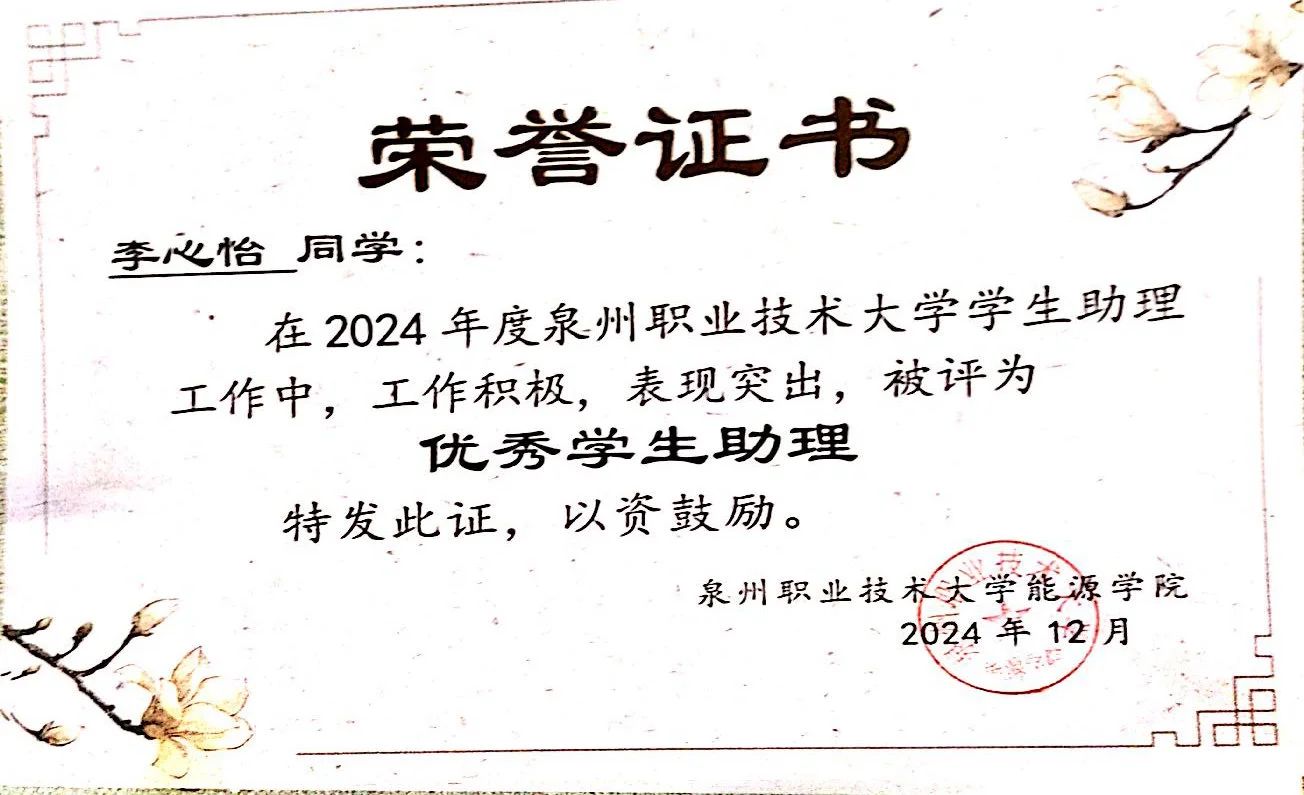 荣誉证书
李心怡 同学：
在 2024 年度泉州职业技术大学学生助理
工作中，工作积极，表现突出，被评为
优秀学生助理
特发此证，以资鼓励。
泉州职业技术大学能源学院
2024 年 12 月